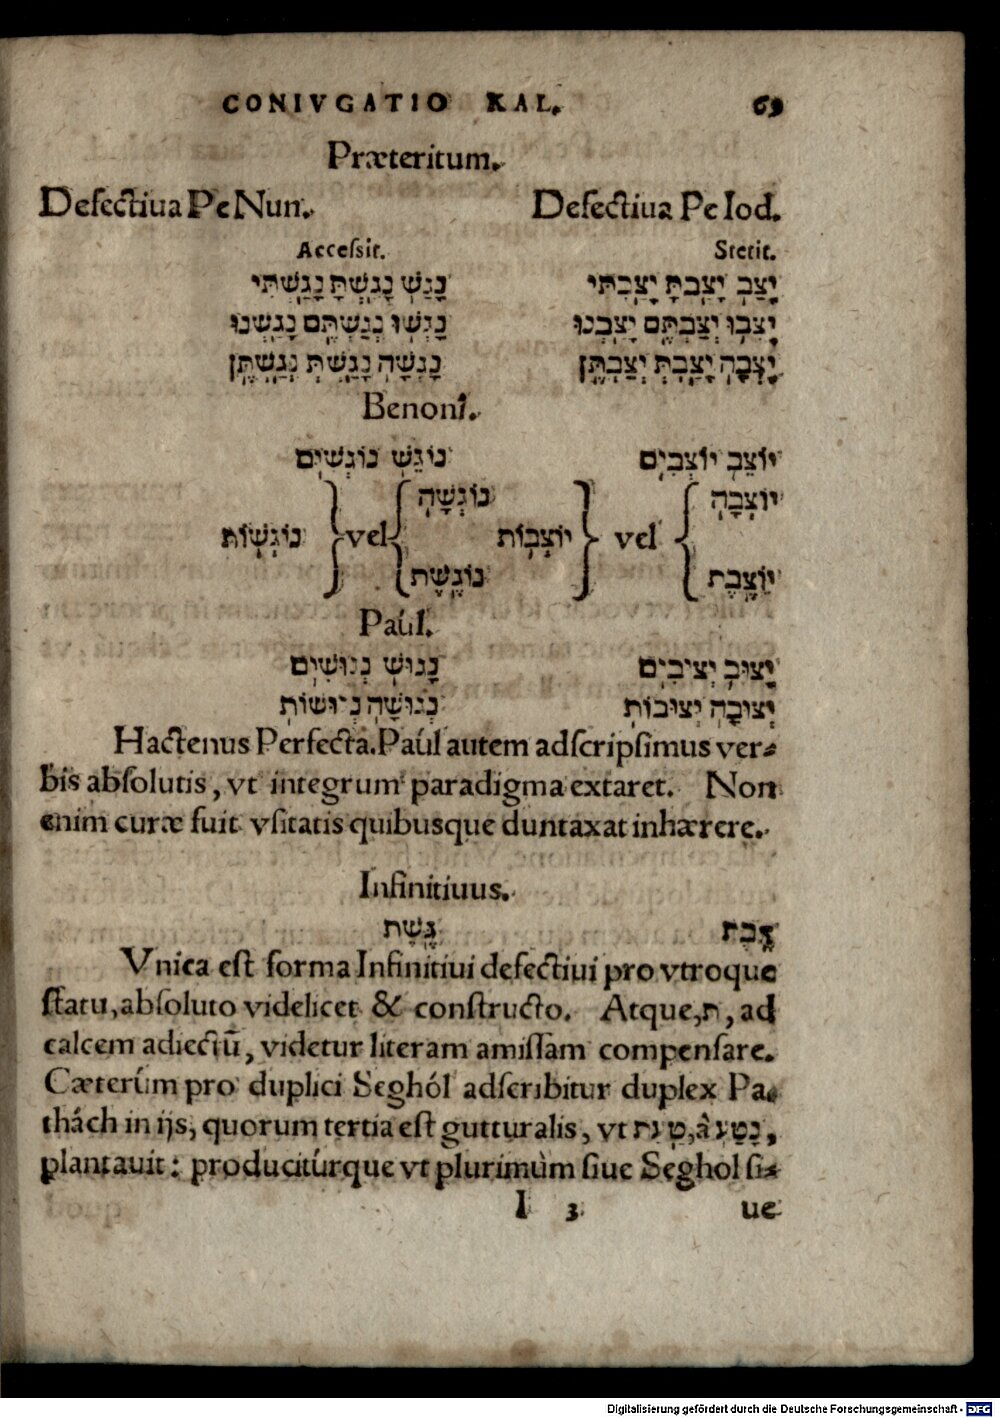 CONIVGATIO KAL. 69
Præteritum.
Defectiua Pe Nun. Defectiua Pe Iod.
Accessit. Stetit.
נָגַשׁ נָגַשְׁתָּ נָגַשְׁתִּי יָצַב יָצַבְתָּ יָצַבְתִּי
נָגְשׁוּ נְגַשְׁתֶּם נָגַשְׁנוּ יָצְבוּ יְצַבְתֶּם יָצַבְנוּ
נָגְשָׁה נָגַשְׁתְּ נְגַשְׁתֶּן יָצְבָה יָצַבְתְּ יְצַבְתֶּן
Benonî.
נוֹגֵשׁ נוֹגְשִׁים יוֹצֵב יוֹצְבִים
נוֹגְשָׁה יוֹצְבָה
נוֹגְשׁוֹת vel יוֹצְבוֹת vel
נוֹגֶשֶׁת יוֹצֶבֶת
Paúl.
נָגוּשׁ נְגוּשִׁים יָצוּב יְצוּבִים
נְגוּשָׁה נְגוּשׁוֹת יְצוּבָה יְצוּבוֹת
Hactenus Perfecta. Paúl autem adscripsimus ver-
bis absolutis, vt integrum paradigma extaret. Non
enim curæ fuit vsitatis quibusque duntaxat inhærere.
Infinitiuus.
גֶּשֶׁת צֶבֶת
Vnica est forma Infinitiui defectiui pro vtroque
statu, absoluto videlicet & constructo. Atque, ת, ad
calcem adiectū, videtur literam amissam compensare.
Cæterúm pro duplici Seghól adscribitur duplex Pa-
thách in ijs, quorum tertia est gutturalis, vt טַעַת, à נָטַע,
plantauit: producitúrque vt plurimùm siue Seghol si-
I 3 ue